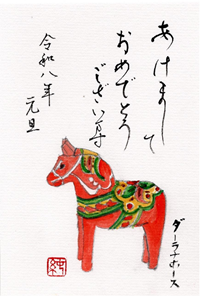 あけまして
おめでとう
ございます
令和八年
元旦
ダーラナホース